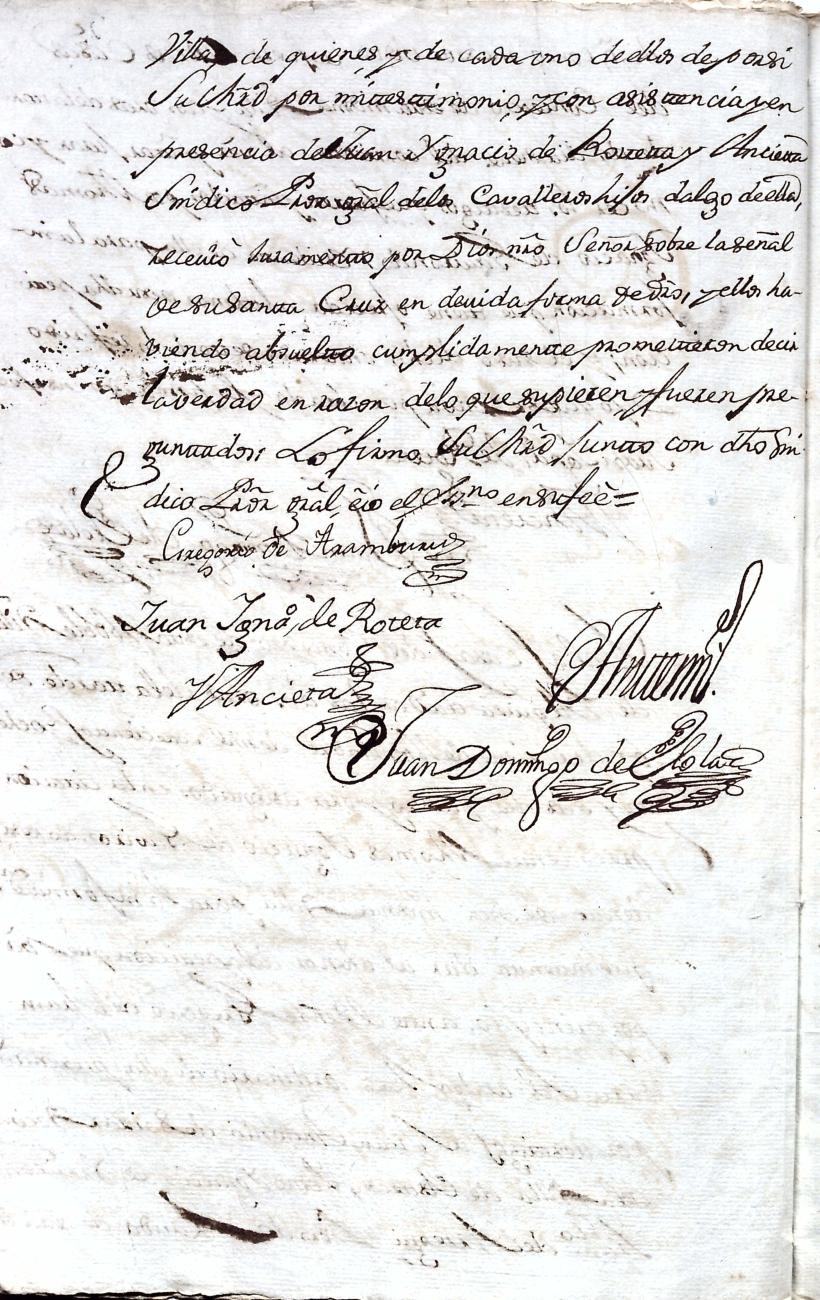 Villa de quienes y de cada uno de ellos de por si
Su Mrd por mi testimonio, y con asistencia y en
presencia de Juan Ygnacio de Rotetta y Ancietta
Sindico Pror gral de los Cavalleros hijos dalgo de ella,
recevió Juramento por Dios nro Señor sobre la señal
de su santta Cruz en devida forma de dro, y ellos ha-
viendo absuelto cumplidamentte prometieron decir
la verdad en razon de lo que supieren y fueren pre-
guntados; Lo firmó Su Mrd juntto con dho Sin-
dico Pror gral, é io el Ssno en su feé=
Gregorio de Aramburu
Juan Ignº de Roteta
Y Ancieta
Antemi
Juan Domingo de